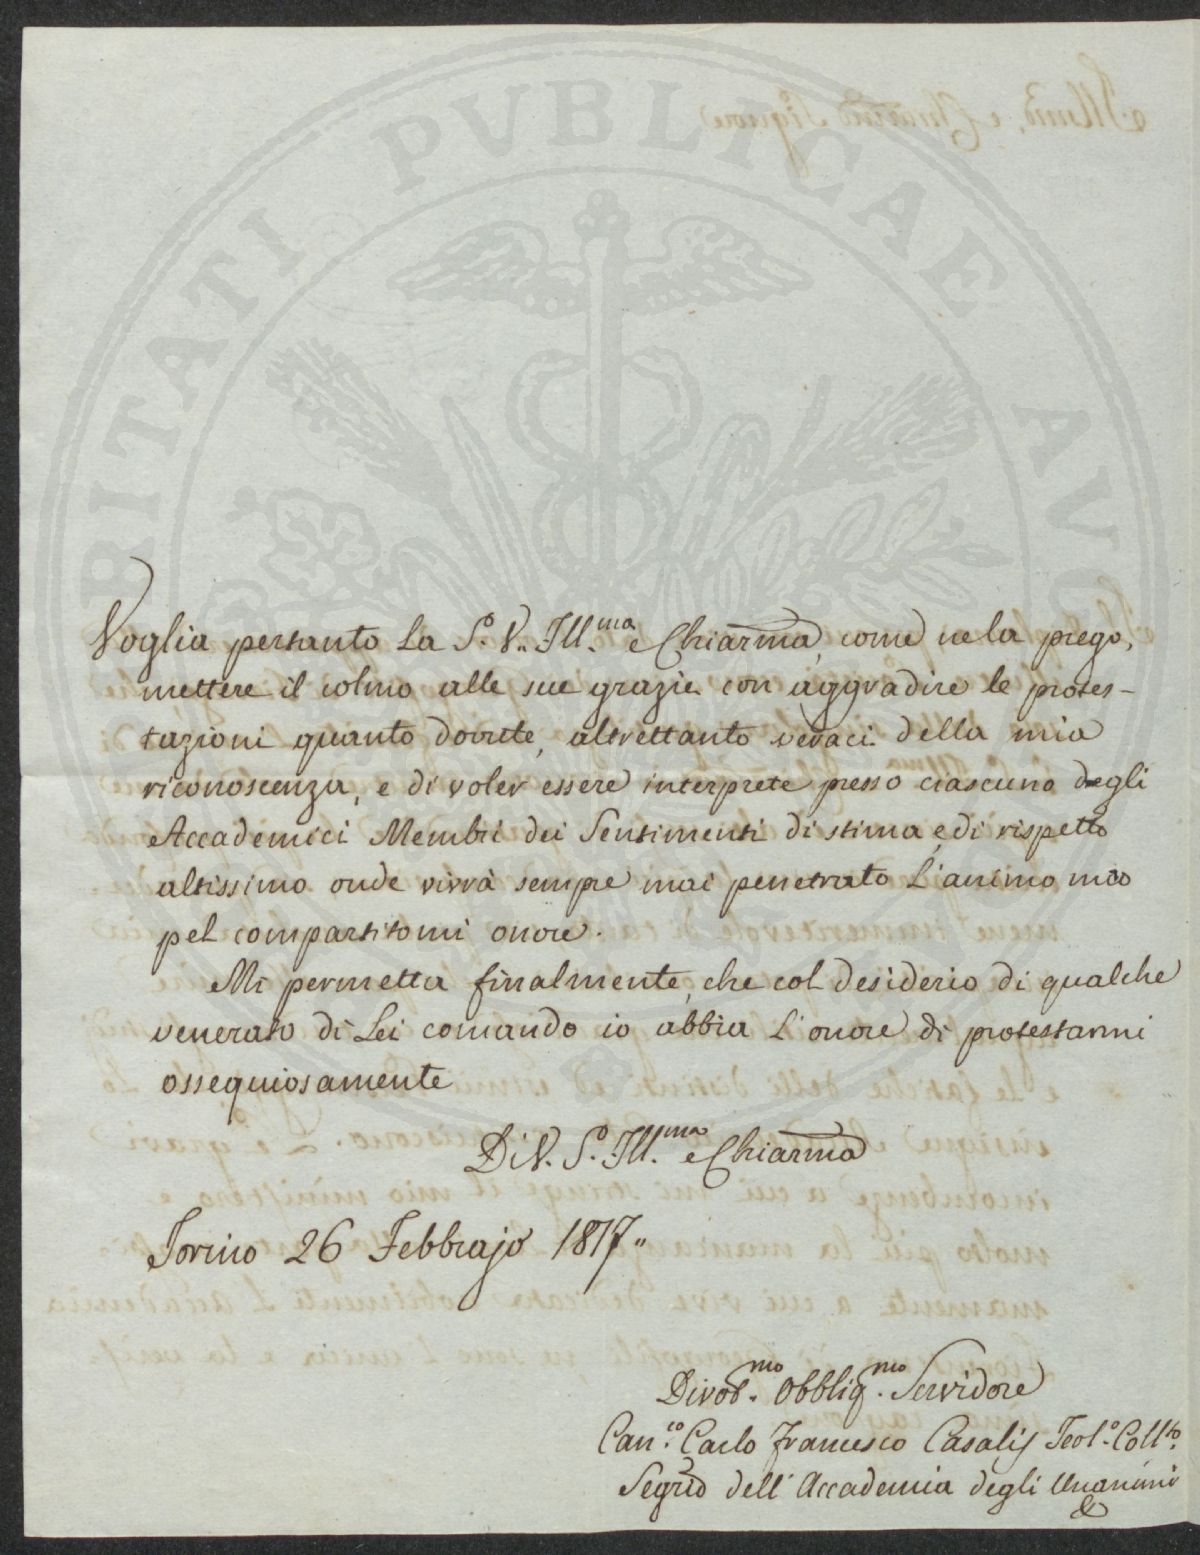 VERITATI PUBLICAE
Voglia pertanto La S. V. Ill.ma e Chiarma, come nela prego,
mettere il colmo alle sue grazie con aggradire le protes-
tazioni quanto dovute, altrettanto veraci della mia
riconoscenza, e di voler essere interprete presso ciascuno degli
Accademici Membri dei Sentimenti di stima, e di rispetto
altissimo onde vivrà sempre mai penetrato L'animo mio
pel compartitomi onore.
Mi permetta finalmente, che col desiderio di qualche
venerato di Lei comando io abbia L'onore di protestarmi
ossequiosamente
Di V. S. Ill.ma e Chiarma
Torino 26 Febbrajo 1817„
Divot.mo Obblig.mo Servidore
Can.co Carlo Francesco Casalis Teol.o Coll.to
Segrio dell'Accademia degli Unanimi